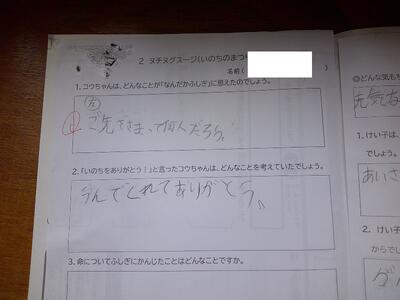 2 ヌチヌグスージ(いのちのまつり
名前(
1.コウちゃんは、どんなことが「なんだかふしぎ」に思えたのでしょう。
ご先ぞさまって何人だろう。
2.「いのちをありがとう!」と言ったコウちゃんは、どんなことを考えていたでしょう。
うんでくれてありがとう。
3.命についてふしぎにかんじたことはどんなことですか。
◎どんな気も
元気な
1.けい子は、
でしょう。
あいさ
2. けい子
からでし